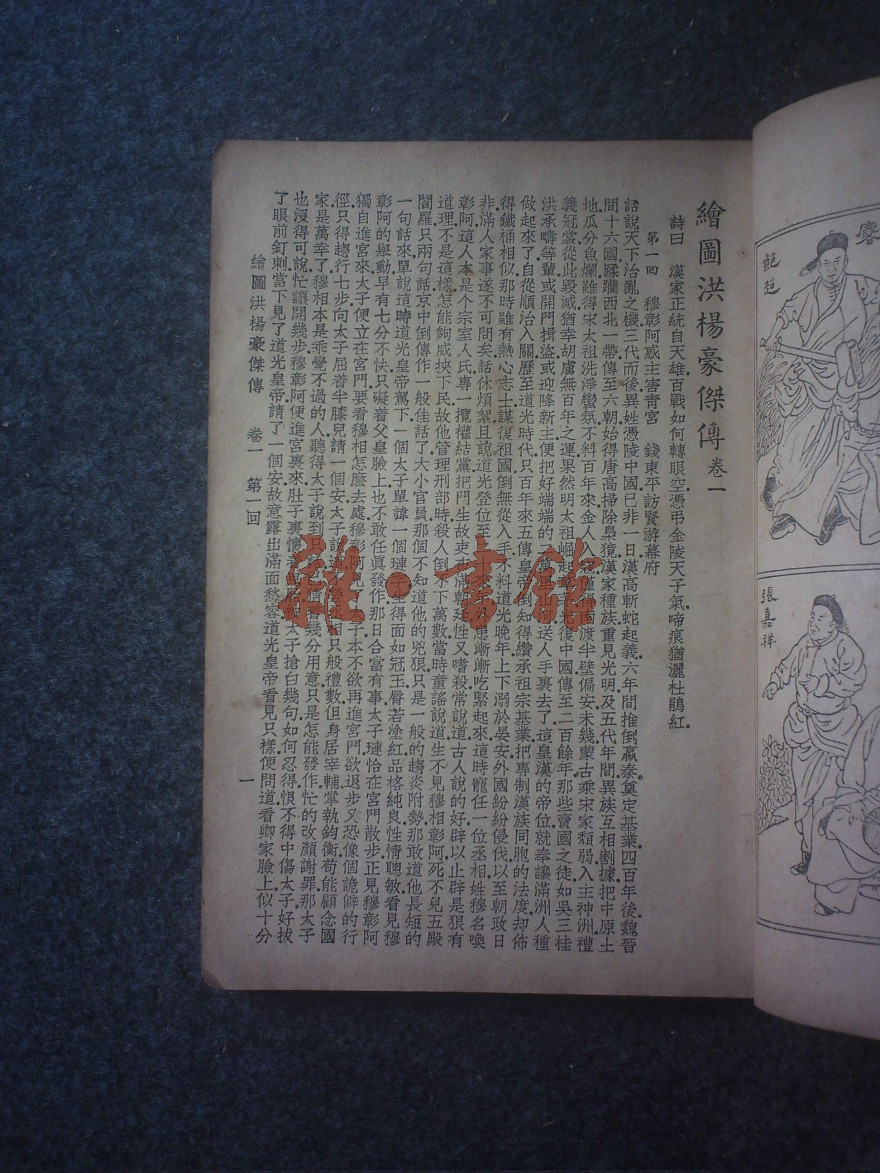 繪圖洪楊豪傑傳 卷一
詩曰 漢家正統自天雄百戰如何轉眼空憑弔金陵天子氣啼痕猶灑杜鵑紅
第一回 穆彰阿惑主害青宮 錢東平訪賢游幕府
話說天下治亂之機三代而後異姓憑陵中國已非一日漢高斬蛇起義六年間推倒嬴秦奠定基業四百年後魏晉
間十六國蹂躪西北一帶傳至六朝始得唐高掃除梟獍漢家種族重見光明及五代年間異族互相割據把中原土
地瓜分魚爛雖得宋太祖洗淨蠻氛不料百年來金人入 南渡半壁偏安未幾蒙古乘宋家頹弱入主神洲禮
義冠裳從此毀滅猶幸胡虜無百年之運果然明太祖崛起 光復中國傳至二百餘年那些賣國之徒如吳三桂
洪承疇等輩或開門揖盜或迎降新主便把好端端的 送人手裏去了這皇漢的帝位就奉讓滿洲人種
做起來了自從順治入關歷至道光時代只百年來五傳皇帝倒知得纘承祖宗基業把專制漢族同胞的法度却佈
得鐵桶相似那時雖有熱心志士謀復祖國倒無從入手不料道光晚年上下溺於晏安外國紛紛侵伐以至朝政日
非滿人家事遂不可問矣話休煩絮且說道光登位至 外患漸漸吃緊起來這時寵任一位丞相姓穆名喚
彰阿這人本是个宗室人氏專一攬權結黨把門生故吏 滿朝廷性又嗜殺常說道古人說的好辟以止辟是狠有
道理不是這樣怎能夠威挾下民故他管理刑部時殺人倒 下萬數當時童謠說道生不見穆相彰阿死不見五殿
閻羅只兩句話京中倒傳作一般佳話了大小官員那個不知道他的兇狠只是一般的趨炎附勢那敢道他長短的
一句話來單說這時道光皇帝駕下一個太子單諱一個璉 生得面如冠玉唇若塗紅品格純良性情聰敏看見穆
彰阿的舉動早有七分不快只礙着父皇臉上也不敢任眞發作那日合當有事太子璉恰在宮門散步正見穆彰阿
獨自進宮來太子便立在宮門要看穆相怎麼去處穆彰阿 子本不欲再進宮門欲退步又恐像個詭僻的行
徑只得趨行七步向太子屈着半膝兒請一個安太子說道 只般禮數但身居宰輔掌執鈞衡苟能顧念國
家是萬幸了穆相本是乖覺不過的人聽得太子說到只 着幾分用意只是怎能發作忙的改顏謝罪那太子
也沒得可說忙讓開幾步穆彰阿便進宮裏來肚子裏懷着 太子搶白幾句如何忍得恨不得中傷太子好拔
了眼前釘刺當下見了道光皇帝請了一個安故意露出滿面愁容道光皇帝看見只樣便問道看卿家臉上似十分
繪圖洪楊豪傑傳 卷一 第一回
一
鮑超
張嘉祥
雜·書館